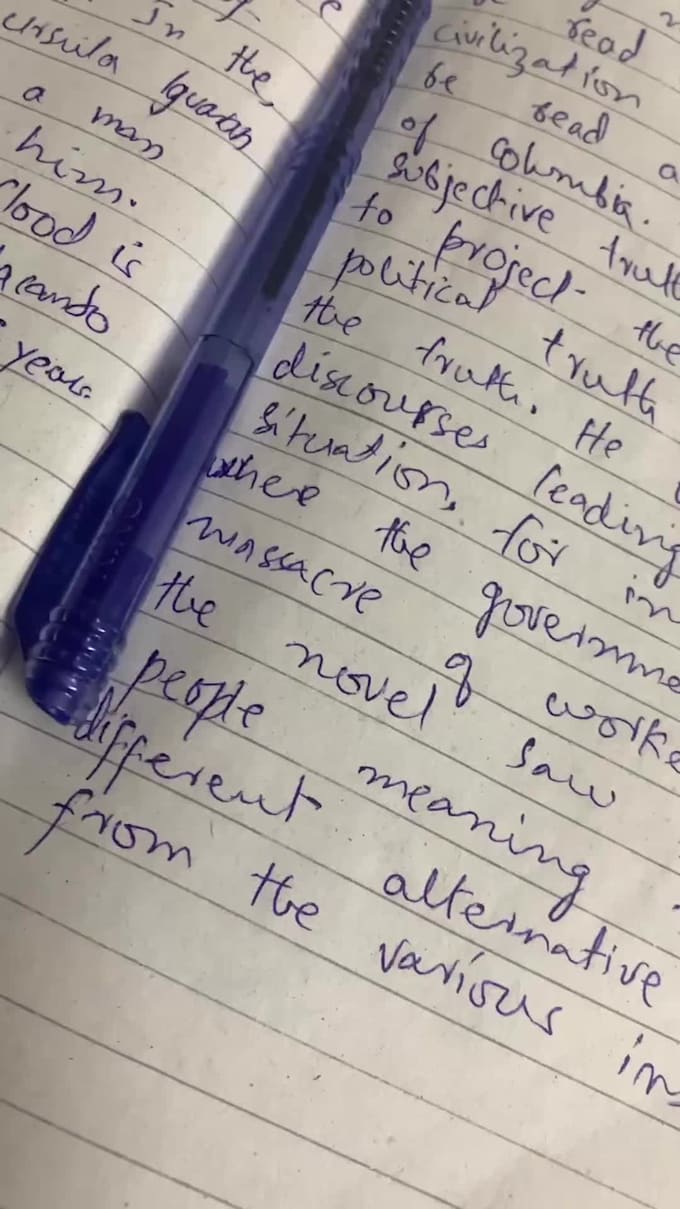 In the
Ursula Iguaran
a man
him.
flood is
Macondo
years.
read
civilization
be read a
of Columbia.
subjective truth
to project the
political truth
the truth. He
discourses leading
situation, for in
where the governme
massacre of worke
the novel saw
people meaning
different alternative
from the various in